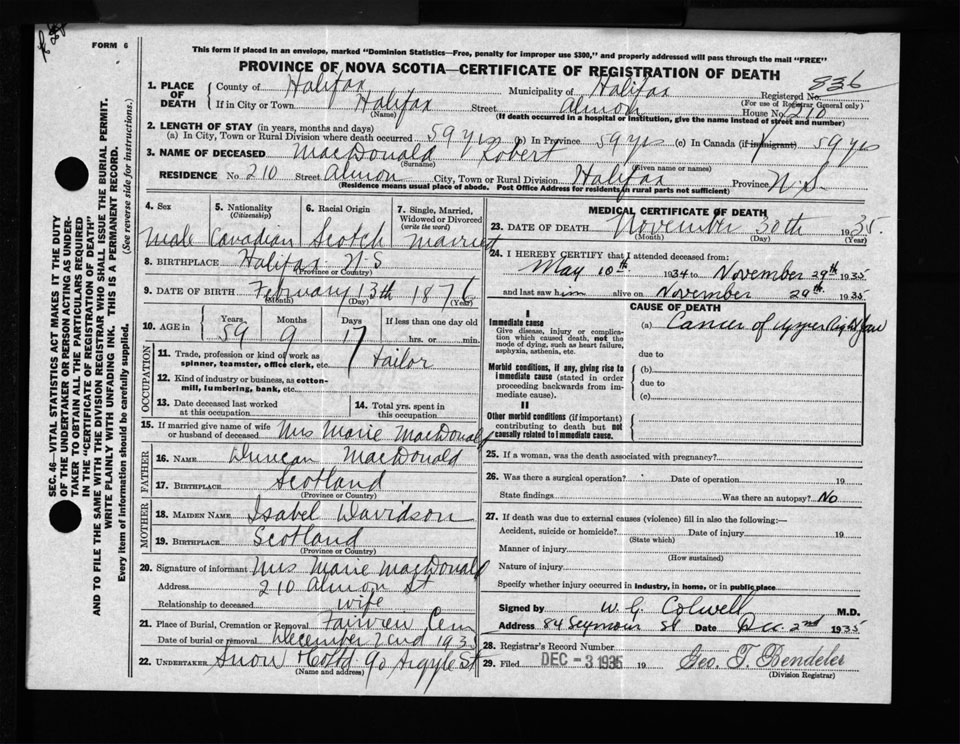 FORM 6
This form if placed in an envelope, marked "Dominion Statistics—Free, penalty for improper use $300," and properly addressed will pass through the mail "FREE"
PROVINCE OF NOVA SCOTIA—CERTIFICATE OF REGISTRATION OF DEATH
836
1. PLACE OF DEATH County of Halifax Municipality of Halifax Registered No.
(For use of Registrar General only)
If in City or Town Halifax Street Almon House No. 210
(Name) (If death occurred in a hospital or institution, give the name instead of street and number)
2. LENGTH OF STAY (in years, months and days)
(a) In City, Town or Rural Division where death occurred 59 yrs (b) In Province 59 yrs (c) In Canada (if immigrant) 59 yrs
3. NAME OF DECEASED MacDonald Robert
(Surname) (Given name or names)
RESIDENCE No. 210 Street Almon City, Town or Rural Division Halifax Province N.S.
(Residence means usual place of abode. Post Office Address for residents in rural parts not sufficient)
4. Sex 5. Nationality (Citizenship) 6. Racial Origin 7. Single, Married, Widowed or Divorced (write the word)
Male Canadian Scotch Married
8. BIRTHPLACE Halifax N-S
(Province or Country)
9. DATE OF BIRTH February 13th 1876
(Month) (Day) (Year)
10. AGE in Years Months Days If less than one day old
59 9 17 hrs. or min.
OCCUPATION
11. Trade, profession or kind of work as spinner, teamster, office clerk, etc. Tailor
12. Kind of industry or business, as cotton-mill, lumbering, bank, etc.
13. Date deceased last worked at this occupation
14. Total yrs. spent in this occupation
15. If married give name of wife or husband of deceased Mrs Marie MacDonald
FATHER
16. NAME Duncan MacDonald
17. BIRTHPLACE Scotland
(Province or Country)
MOTHER
18. MAIDEN NAME Isabel Davidson
19. BIRTHPLACE Scotland
(Province or Country)
20. Signature of informant Mrs Marie MacDonald
Address 210 Almon St
Relationship to deceased wife
21. Place of Burial, Cremation or Removal Fairview Cem
Date of burial or removal December 2nd 1935
22. UNDERTAKER Snow 90 Argyle St
(Name and address)
MEDICAL CERTIFICATE OF DEATH
23. DATE OF DEATH November 30th 1935
(Month) (Day) (Year)
24. I HEREBY CERTIFY that I attended deceased from:
May 10th 1934 to November 29th 1935
and last saw him alive on November 29th 1935
CAUSE OF DEATH
I
Immediate cause
Give disease, injury or complication which caused death, not the mode of dying, such as heart failure, asphyxia, asthenia, etc.
(a) Cancer of upper right jaw
due to
Morbid conditions, if any, giving rise to immediate cause (stated in order proceeding backwards from immediate cause).
(b)
due to
(c)
II
Other morbid conditions (if important) contributing to death but not causally related to immediate cause.
25. If a woman, was the death associated with pregnancy?
26. Was there a surgical operation? Date of operation 19
State findings Was there an autopsy? No
27. If death was due to external causes (violence) fill in also the following:—
Accident, suicide or homicide? Date of injury 19
(State which)
Manner of injury
(How sustained)
Nature of injury
Specify whether injury occurred in Industry, in home, or in public place
Signed by W. G. Colwell M.D.
Address 84 Seymour St Date Dec 2nd 1935
28. Registrar's Record Number
29. Filed DEC - 3 1935 19 Geo. T. Bendeler
(Division Registrar)
SEC. 46—VITAL STATISTICS ACT MAKES IT THE DUTY
OF THE UNDERTAKER OR PERSON ACTING AS UNDER-
TAKER TO OBTAIN ALL THE PARTICULARS REQUIRED
IN THE "CERTIFICATE OF REGISTRATION OF DEATH"
AND TO FILE THE SAME WITH THE DIVISION REGISTRAR WHO SHALL ISSUE THE BURIAL PERMIT.
WRITE PLAINLY WITH UNFADING INK. THIS IS A PERMANENT RECORD.
Every item of information should be carefully supplied. (See reverse side for instructions.)